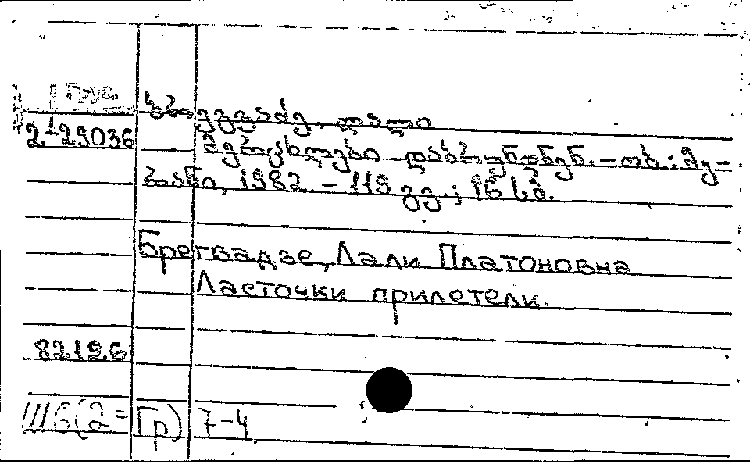 Груз.
2-29036
ბრეგვაძე, ლალი
მერცხლები დაბრუნდნენ. – თბ.: მე-
რანი, 1982. – 119 გვ.; 16 სმ.
Брегвадзе, Лали Платоновна
Ласточки прилетели.
82126
Ш6(2=Гр) 7-4